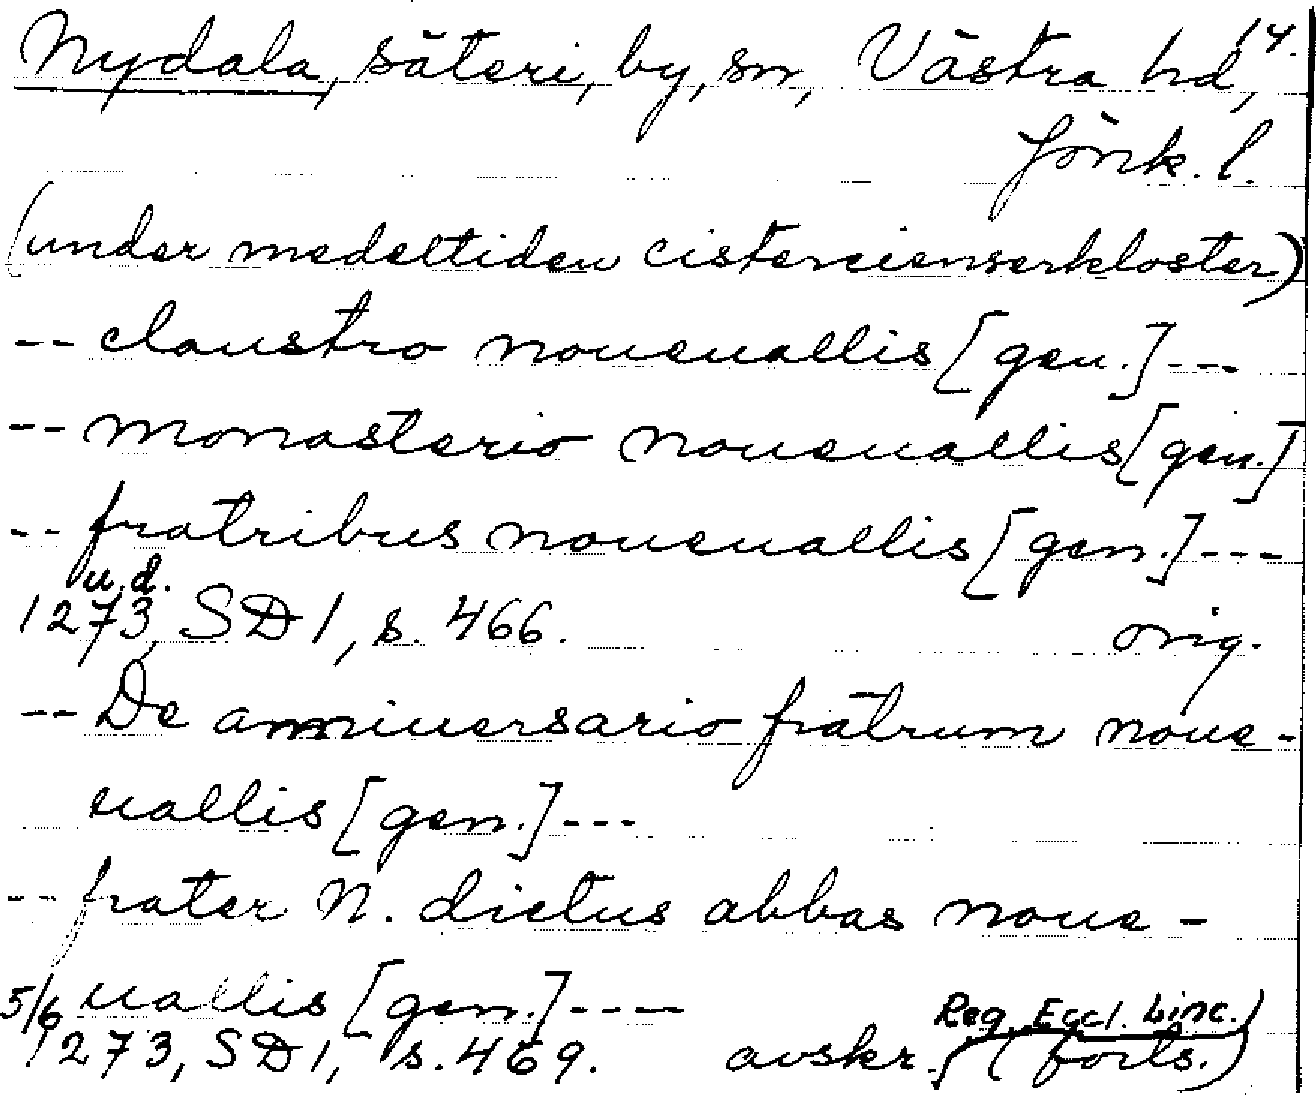 14.
Nydala, säteri, by, sn, Västra hd,
Jönk. l.
(under medeltiden cistercienserkloster)
-- claustro noueuallis [gen.] ---
-- monasterio noueuallis [gen.]
-- fratribus noueuallis [gen.] ---
u.d.
1273, SD 1, s. 466. orig.
-- De anniuersario fratrum noue-
uallis [gen.] ---
-- frater N. dictus abbas noue-
uallis [gen.] ----
5/6 1273, SD 1, s. 469. avskr. Reg. Eccl. Linc. (forts.)